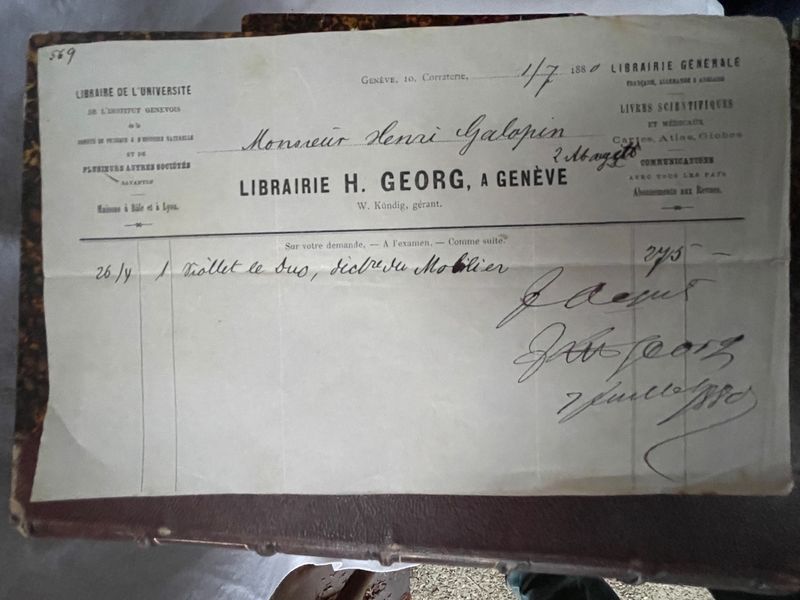 569
GENÈVE, 10, Corraterie, 1/7 1880
LIBRAIRE DE L'UNIVERSITÉ
DE L'INSTITUT GENEVOIS
de la
SOCIÉTÉ DE PHYSIQUE & D'HISTOIRE NATURELLE
ET DE
PLUSIEURS AUTRES SOCIÉTÉS
SAVANTES
Maisons à Bâle et à Lyon.
LIBRAIRIE GÉNÉRALE
FRANÇAISE, ALLEMANDE & ANGLAISE
LIVRES SCIENTIFIQUES
ET MÉDICAUX
Cartes, Atlas, Globes
COMMUNICATIONS
AVEC TOUS LES PAYS
Abonnements aux Revues.
Monsieur Henri Galopin
LIBRAIRIE H. GEORG, A GENÈVE
W. Kündig, gérant.
Sur votre demande. — A l'examen. — Comme suite.
26/4 1 Viollet le Duc, dictre du Mobilier 275 —
Georg
7 Juillet 1880